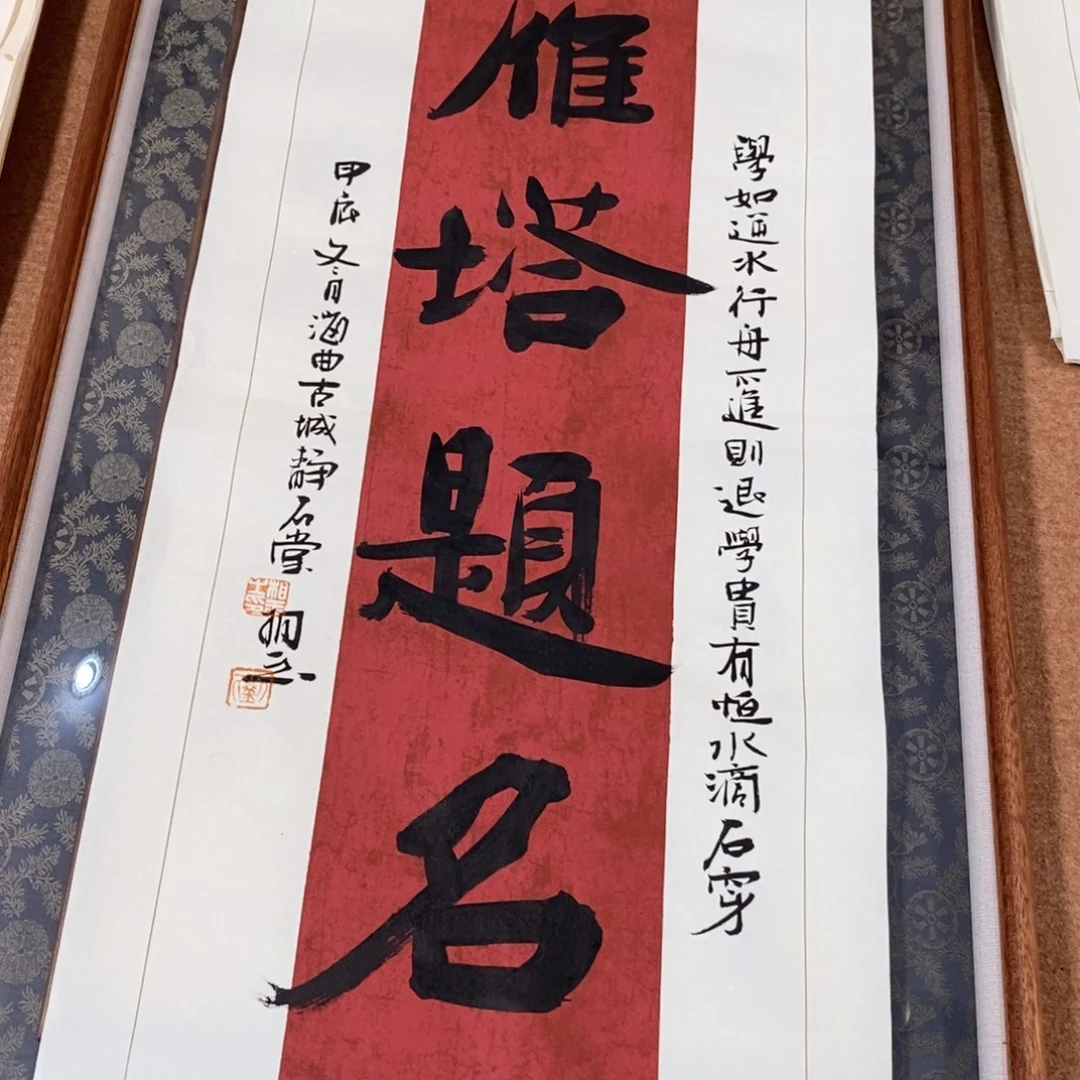 學如逆水行舟不進則退學貴有恒水滴石穿
雁塔題名
甲辰冬月海曲古城静石堂